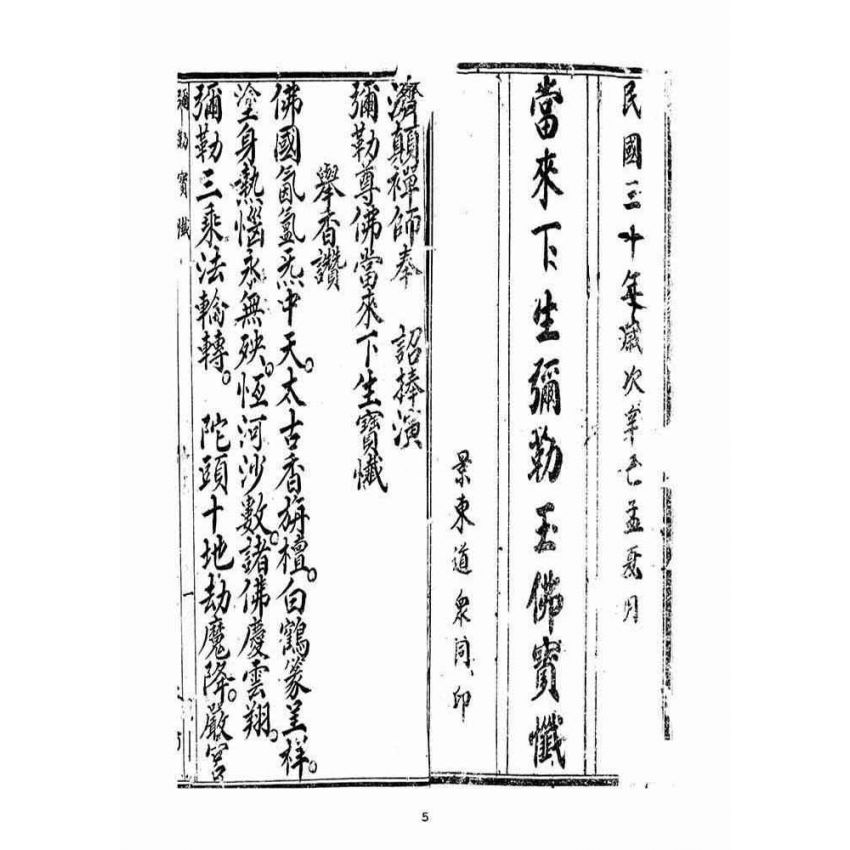 民國三十年歲次辛巳孟夏月
當來下生彌勒玉佛寶懺
景東道衆同印
濟顛禪師奉 詔捧演
彌勒尊佛當來下生寶懺
舉香讚
佛國氤氳炁中天。太古香旃檀。白鶴篆呈祥。
塗身熱惱永無殃。恆河沙數。諸佛慶雲翔。
彌勒三乘法輪轉。 陀頭十地劫魔降。嚴宮
彌勒寶懺
一
5